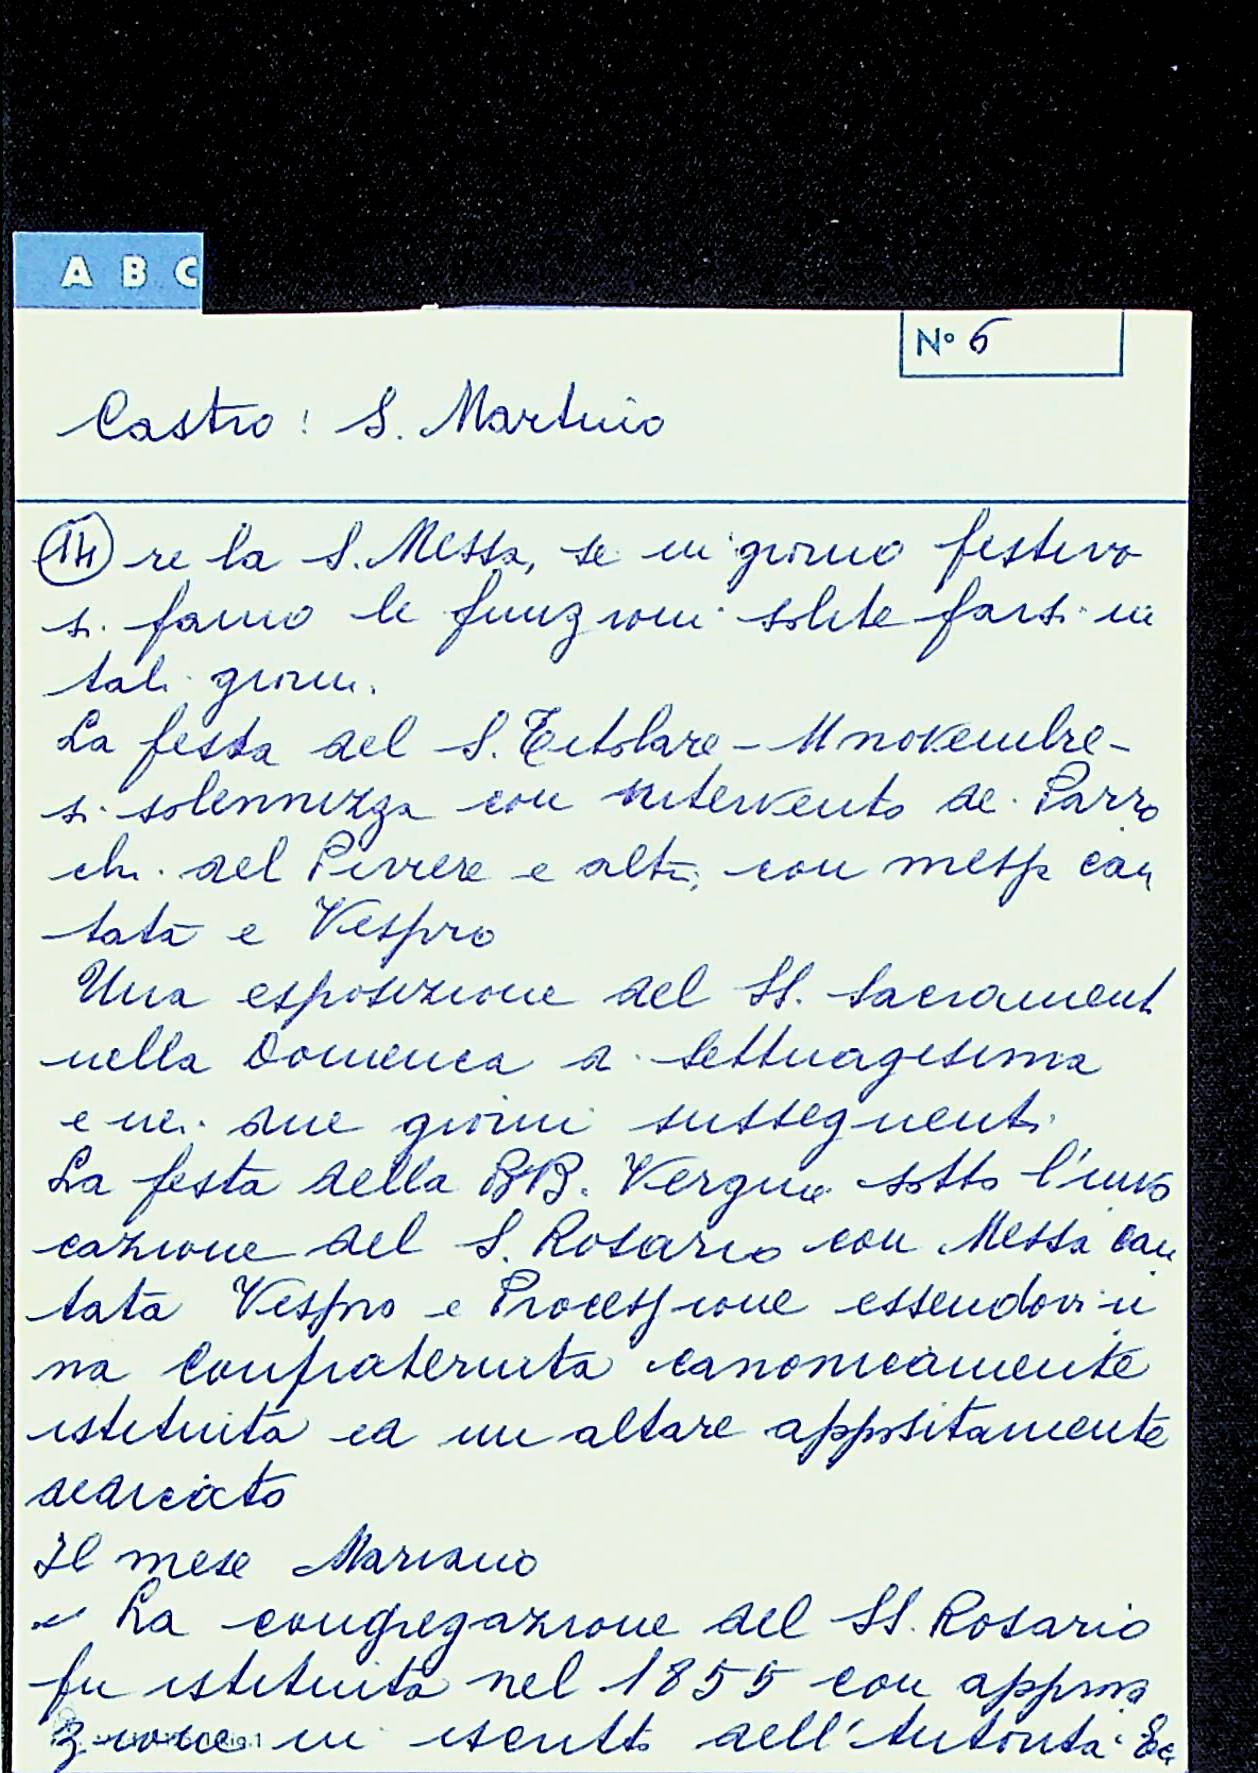 A B C
N° 6
Castro: S. Martino
14 re la S. Messa, se in giorno festivo
si fanno le funzioni solite farsi in
tali giorni.
La festa del S. Titolare - 11 novembre -
si solennizza con intervento dei Parro
chi del Piviere e altri, con messa can
tata e Vespro
Una esposizione del SS. Sacrament
nella Domenica di Settuagesima
e nei due giorni susseguenti
La festa della BB. Vergine sotto l'invo
cazione del S. Rosario con Messa can
tata Vespro e Processione essendovi u
na Confraternita canonicamente
istituita ed un altare appositamente
dedicato
Il mese Mariano
La congregazione del SS. Rosario
fu istituita nel 1855 con approva
zione in iscritto dell'Autorità Ec